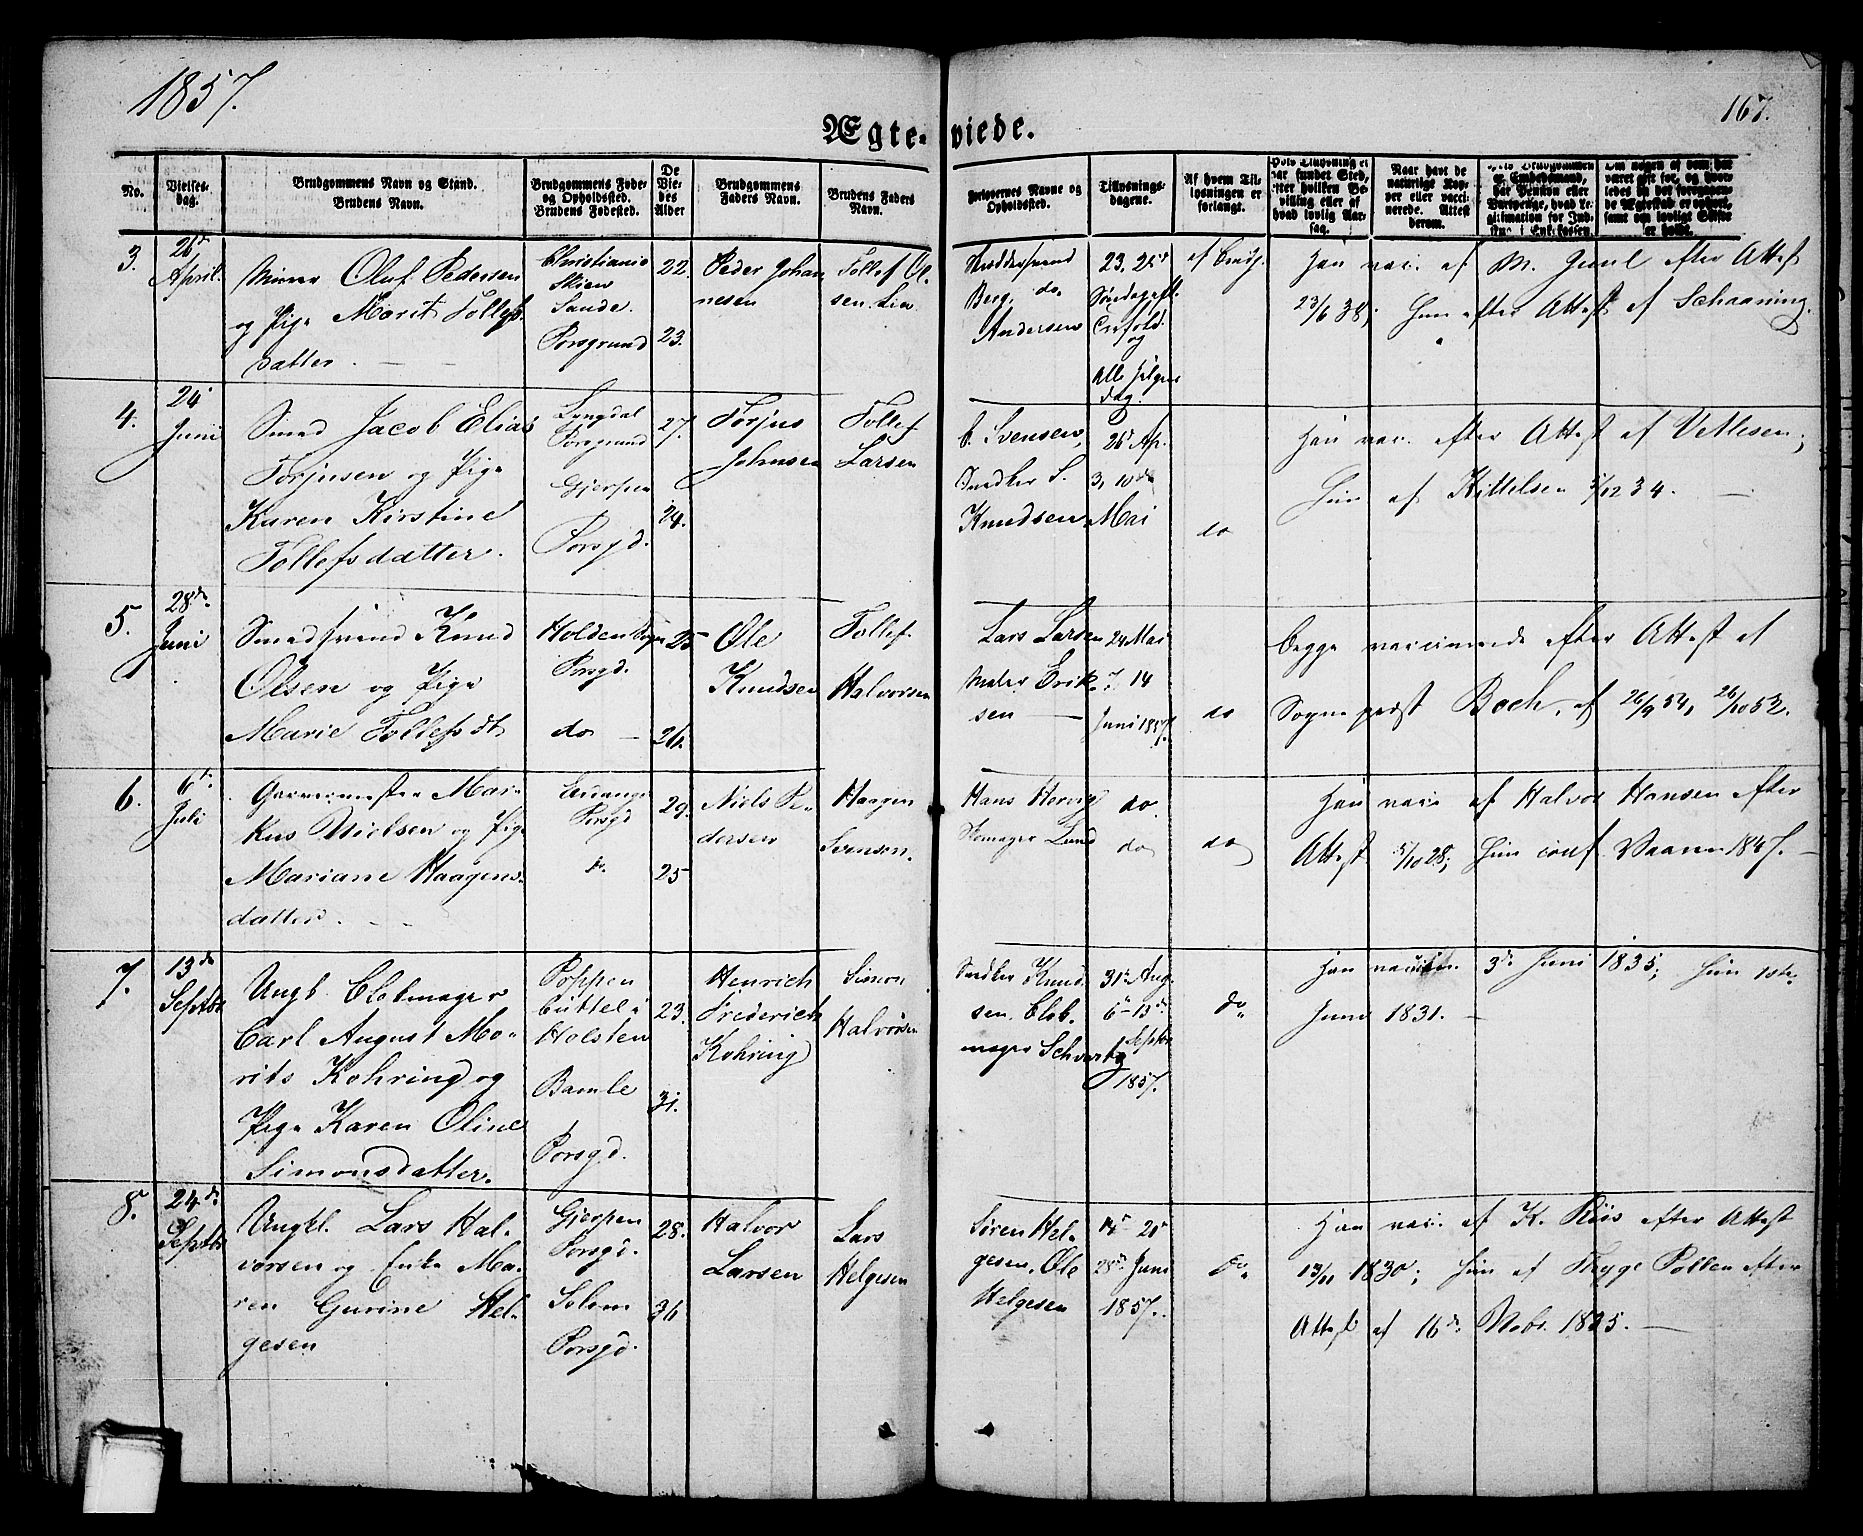 1857.
167.
Ægte-viede.
No.
Vielses-
dag.
Brudgommens Navn og Stand.
Brudens Navn.
Brudgommens Føde-
og Opholdssted.
Brudens Fødested.
De
Vie-
des
Alder
Brudgommens
Faders Navn.
Brudens Faders
Navn.
Forlovernes Navne og
Opholdssted.
Tillysnings-
dagene.
Af hvem Til-
lysningen er
forlangt.
Hvis Tillysning ei
har fundet Sted,
efter hvilken Be-
villing eller af
hvad lovlig Aar-
sag.
Naar havt de
naturlige Kop-
per eller vacci-
nerede. Attest
derom.
3.
26de
April
Oluf Pedersen
og Pige Marit Tollefs-
datter.
Christiania
Skien
Sande.
Porsgrund
22.
23.
Peder Johan
nesen
Tollef Ol-
sen Lia
Berg, do
Andersen
23. 25de
Søndag eft.
Trefold.
og
Alle Helgens
Dag.
af Brudg.
Han vac. af M. Juul efter Attest
23/6 38; Hun efter Attest af Schaaning.
4.
24
Juni
Smed Jacob Elias
Torjusen og Pige
Karen Kirstine
Tollefsdatter.
Lyngdal
Porsgrund
Gjerpen
Porsgd.
27.
24.
Torjus
Johnsen
Tollef
Larsen
Svensen,
Snedker S.
Knudsen
26de Ap.
3, 10de
Mai
do
Han vac. efter Attest af Vetlesen;
Hun af Kittelsen 5/12 34. —
5.
28de
Juni
Smedsvend Knud
Olsen og Pige
Marie Tollefsdt.
Holden Sogn
Porsgd.
do —
25
26.
Ole
Knudsen
Tollef
Halvorsen
Lars Larsen
Maler Erik-
sen —
24 Mai
7. 14
Juni 1857.
do
Begge vaccinerede efter Attest af
Sognepræst Boch, af 26/9 54, 26/10 52.
6.
6te
Juli
Garvermester Mar-
kus Nielsen og Pige
Mariane Haagens-
datter.
Eidanger
Porsgd
do
29.
25
Niels Pe-
dersen
Haagen
Svensen.
Hans Hervig
Skomager Lund
do.
do
do
Han vacc. af Halvor Hansen efter
Attest 5/10 28; Hun conf. Vaaren 1847. —
7.
13de
Septbr
Ungk. Blokmager
Carl August Mo-
rits Kohring og
Pige Karen Oline
Simonsdatter.
Poppen
büttel i
Holsten
Bamle
Porsgd.
23.
31.
Henrich
Frederich
Kohring
Simon
Halvorsen
Snedker Knud-
sen, Blok-
mager Schwartz
31te Aug.
6te – 13de
Septbr
1857.
do
Han vaccineret 3de Juni 1835; Hun 1ste
Juni 1831. —
8.
24de
Septbr
Ungkl. Lars Hal-
vorsen og Enke Ma-
ren Gurine Hel-
gesen
Gjerpen
Porsgd.
Solum
Porsgd.
28.
36
Halvor
Larsen
Lars
Helgesen
Søren Hel-
gesen, Ole
Helgesen
28de Juni
1857.
do
Han vac. af K. Riis efter Attest
13/11 1830; Hun af Thyge Polken efter
Attest af 16de Nobr. 1825. —